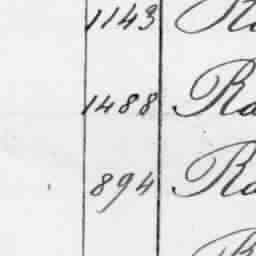 1143
1488 Ra
894 Ra